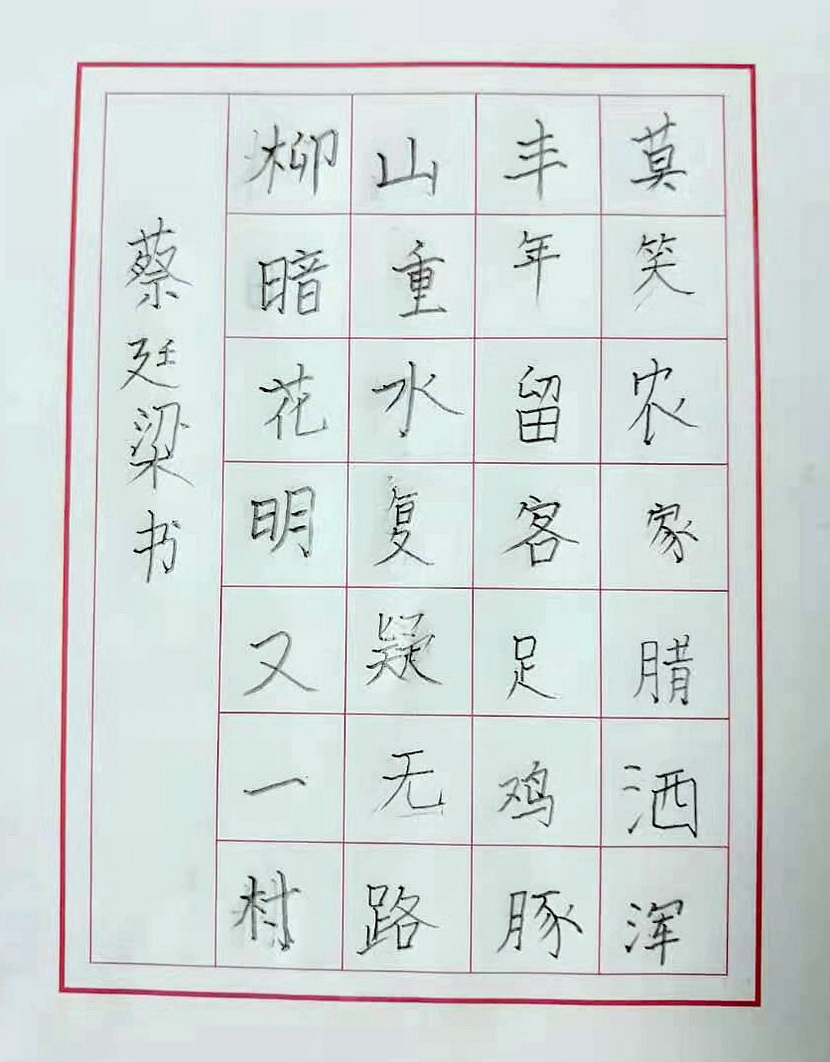 莫笑农家腊洒浑
丰年留客足鸡豚
山重水复疑无路
柳暗花明又一村
蔡廷梁书